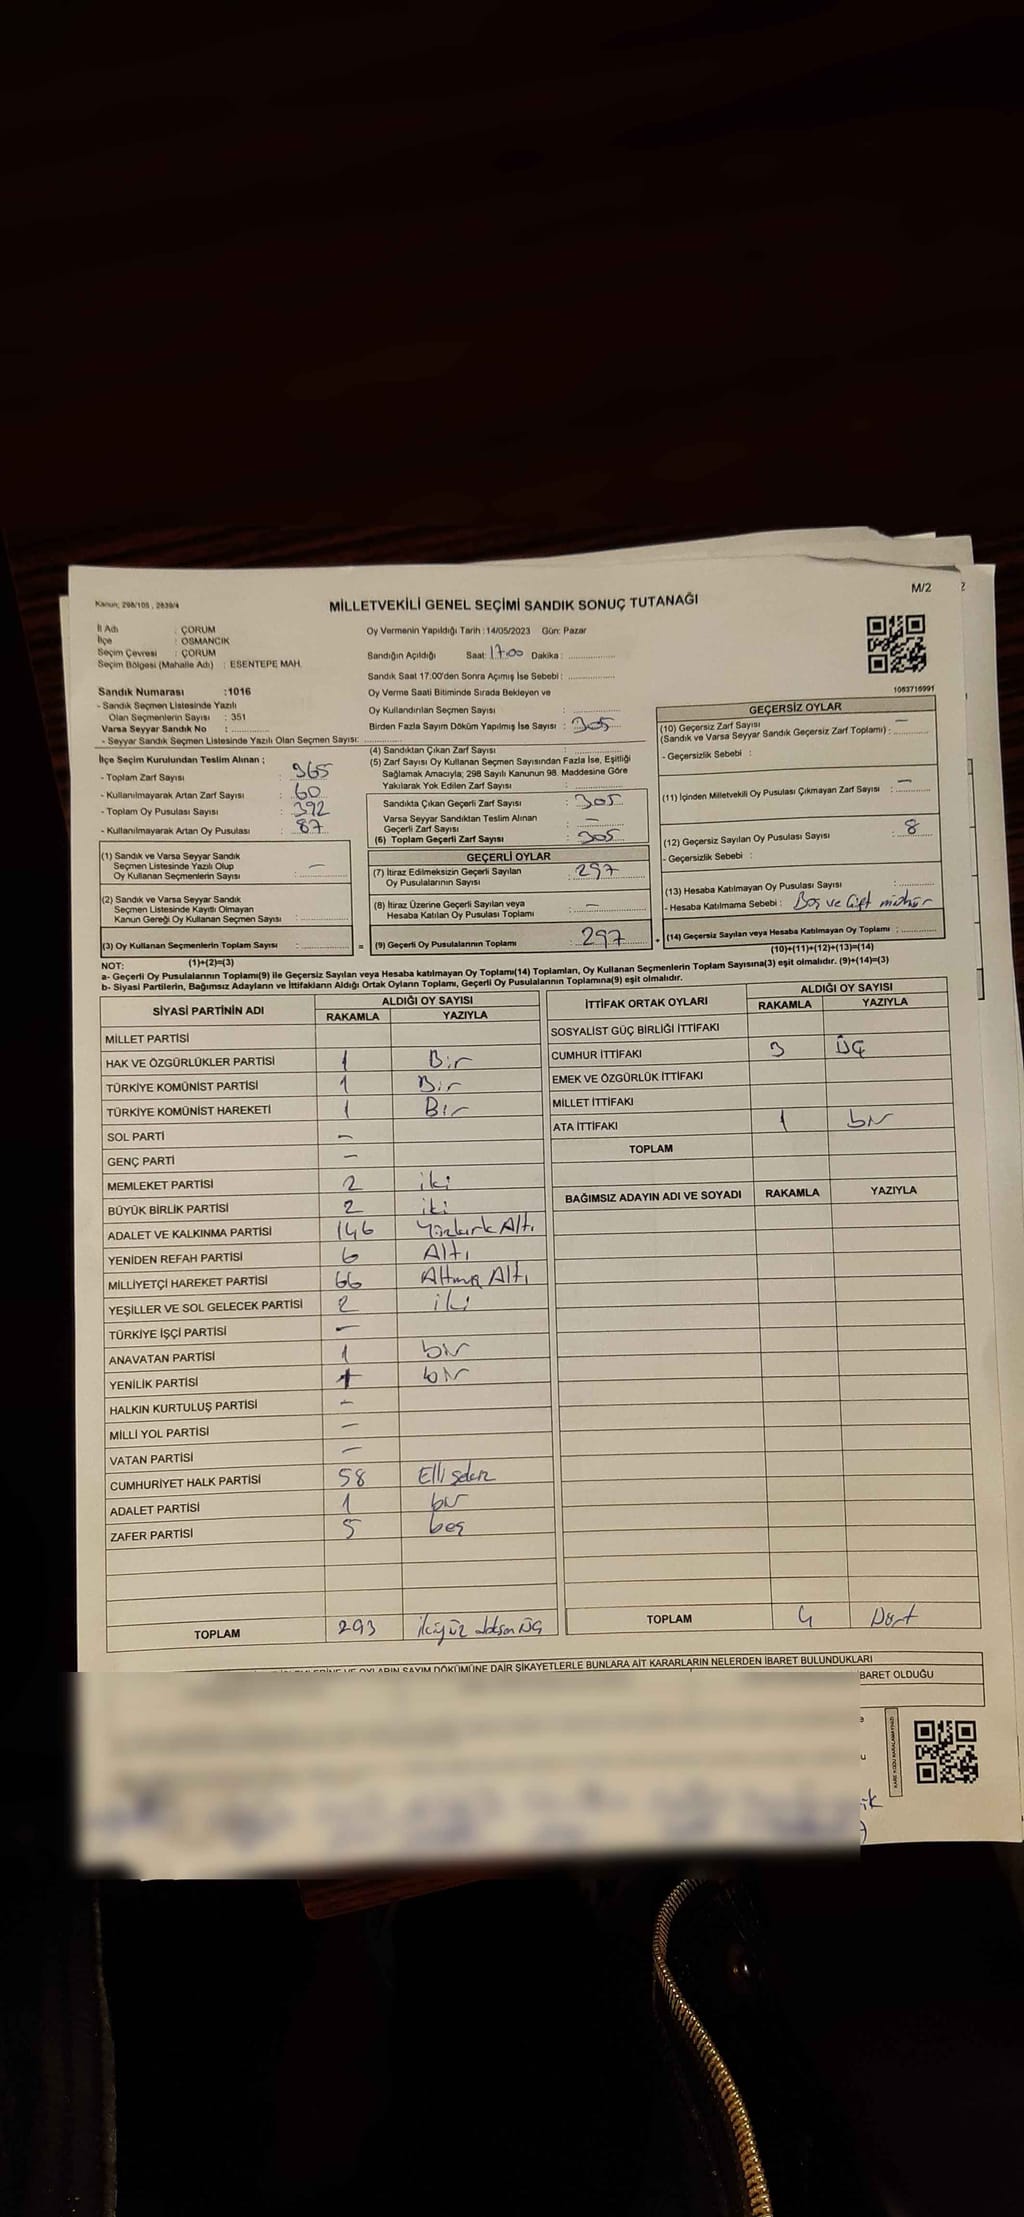 M/2
Kanun: 298/105 , 2839/4
MİLLETVEKİLİ GENEL SEÇİMİ SANDIK SONUÇ TUTANAĞI
İl Adı : ÇORUM
İlçe : OSMANCIK
Seçim Çevresi : ÇORUM
Seçim Bölgesi (Mahalle Adı) : ESENTEPE MAH.
Sandık Numarası :1016
- Sandık Seçmen Listesinde Yazılı
Olan Seçmenlerin Sayısı : 351
Varsa Seyyar Sandık No :
- Seyyar Sandık Seçmen Listesinde Yazılı Olan Seçmen Sayısı:
Oy Vermenin Yapıldığı Tarih : 14/05/2023 Gün: Pazar
Sandığın Açıldığı Saat: 17.00 Dakika :
Sandık Saat 17:00'den Sonra Açımış İse Sebebi :
Oy Verme Saati Bitiminde Sırada Bekleyen ve
Oy Kullandırılan Seçmen Sayısı :
Birden Fazla Sayım Döküm Yapılmış İse Sayısı : 305
1063716991
İlçe Seçim Kurulundan Teslim Alınan ;
- Toplam Zarf Sayısı : 365
- Kullanılmayarak Artan Zarf Sayısı : 60
- Toplam Oy Pusulası Sayısı : 392
- Kullanılmayarak Artan Oy Pusulası : 87
(1) Sandık ve Varsa Seyyar Sandık
Seçmen Listesinde Yazılı Olup
Oy Kullanan Seçmenlerin Sayısı : —
(2) Sandık ve Varsa Seyyar Sandık
Seçmen Listesinde Kayıtlı Olmayan
Kanun Gereği Oy Kullanan Seçmen Sayısı :
(3) Oy Kullanan Seçmenlerin Toplam Sayısı :
(1)+(2)=(3)
(4) Sandıktan Çıkan Zarf Sayısı :
(5) Zarf Sayısı Oy Kullanan Seçmen Sayısından Fazla İse, Eşitliği
Sağlamak Amacıyla; 298 Sayılı Kanunun 98. Maddesine Göre
Yakılarak Yok Edilen Zarf Sayısı :
Sandıkta Çıkan Geçerli Zarf Sayısı : 305
Varsa Seyyar Sandıktan Teslim Alınan
Geçerli Zarf Sayısı : —
(6) Toplam Geçerli Zarf Sayısı : 305
GEÇERLİ OYLAR
(7) İtiraz Edilmeksizin Geçerli Sayılan
Oy Pusulalarının Sayısı : 297
(8) İtiraz Üzerine Geçerli Sayılan veya
Hesaba Katılan Oy Pusulası Toplamı : —
= (9) Geçerli Oy Pusulalarının Toplamı : 297 +
GEÇERSİZ OYLAR
(10) Geçersiz Zarf Sayısı
(Sandık ve Varsa Seyyar Sandık Geçersiz Zarf Toplamı) : —
- Geçersizlik Sebebi :
(11) İçinden Milletvekili Oy Pusulası Çıkmayan Zarf Sayısı : —
(12) Geçersiz Sayılan Oy Pusulası Sayısı : 8
- Geçersizlik Sebebi :
(13) Hesaba Katılmayan Oy Pusulası Sayısı :
- Hesaba Katılmama Sebebi : Boş ve Çift mühür
(14) Geçersiz Sayılan veya Hesaba Katılmayan Oy Toplamı :
(10)+(11)+(12)+(13)=(14)
NOT:
a- Geçerli Oy Pusulalarının Toplamı(9) ile Geçersiz Sayılan veya Hesaba katılmayan Oy Toplamı(14) Toplamları, Oy Kullanan Seçmenlerin Toplam Sayısına(3) eşit olmalıdır. (9)+(14)=(3)
b- Siyasi Partilerin, Bağımsız Adayların ve İttifakların Aldığı Ortak Oyların Toplamı, Geçerli Oy Pusulalarının Toplamına(9) eşit olmalıdır.
SİYASİ PARTİNİN ADI ALDIĞI OY SAYISI
RAKAMLA YAZIYLA
MİLLET PARTİSİ
HAK VE ÖZGÜRLÜKLER PARTİSİ 1 Bir
TÜRKİYE KOMÜNİST PARTİSİ 1 Bir
TÜRKİYE KOMÜNİST HAREKETİ 1 Bir
SOL PARTİ —
GENÇ PARTİ —
MEMLEKET PARTİSİ 2 iki
BÜYÜK BİRLİK PARTİSİ 2 iki
ADALET VE KALKINMA PARTİSİ 146 Yüzkırk Altı
YENİDEN REFAH PARTİSİ 6 Altı
MİLLİYETÇİ HAREKET PARTİSİ 66 Altmış Altı
YEŞİLLER VE SOL GELECEK PARTİSİ 2 iki
TÜRKİYE İŞÇİ PARTİSİ —
ANAVATAN PARTİSİ 1 bir
YENİLİK PARTİSİ 1 bir
HALKIN KURTULUŞ PARTİSİ —
MİLLİ YOL PARTİSİ —
VATAN PARTİSİ —
CUMHURİYET HALK PARTİSİ 58 Elli sekiz
ADALET PARTİSİ 1 bir
ZAFER PARTİSİ 5 beş
TOPLAM 293 ikiyüz doksan üç
İTTİFAK ORTAK OYLARI ALDIĞI OY SAYISI
RAKAMLA YAZIYLA
SOSYALİST GÜÇ BİRLİĞİ İTTİFAKI
CUMHUR İTTİFAKI 3 ÜÇ
EMEK VE ÖZGÜRLÜK İTTİFAKI
MİLLET İTTİFAKI
ATA İTTİFAKI 1 bir
TOPLAM
BAĞIMSIZ ADAYIN ADI VE SOYADI RAKAMLA YAZIYLA
TOPLAM 4 Dört
OYLARIN SAYIM DÖKÜMÜNE DAİR ŞİKAYETLERLE BUNLARA AİT KARARLARIN NELERDEN İBARET BULUNDUKLARI
BARET OLDUĞU